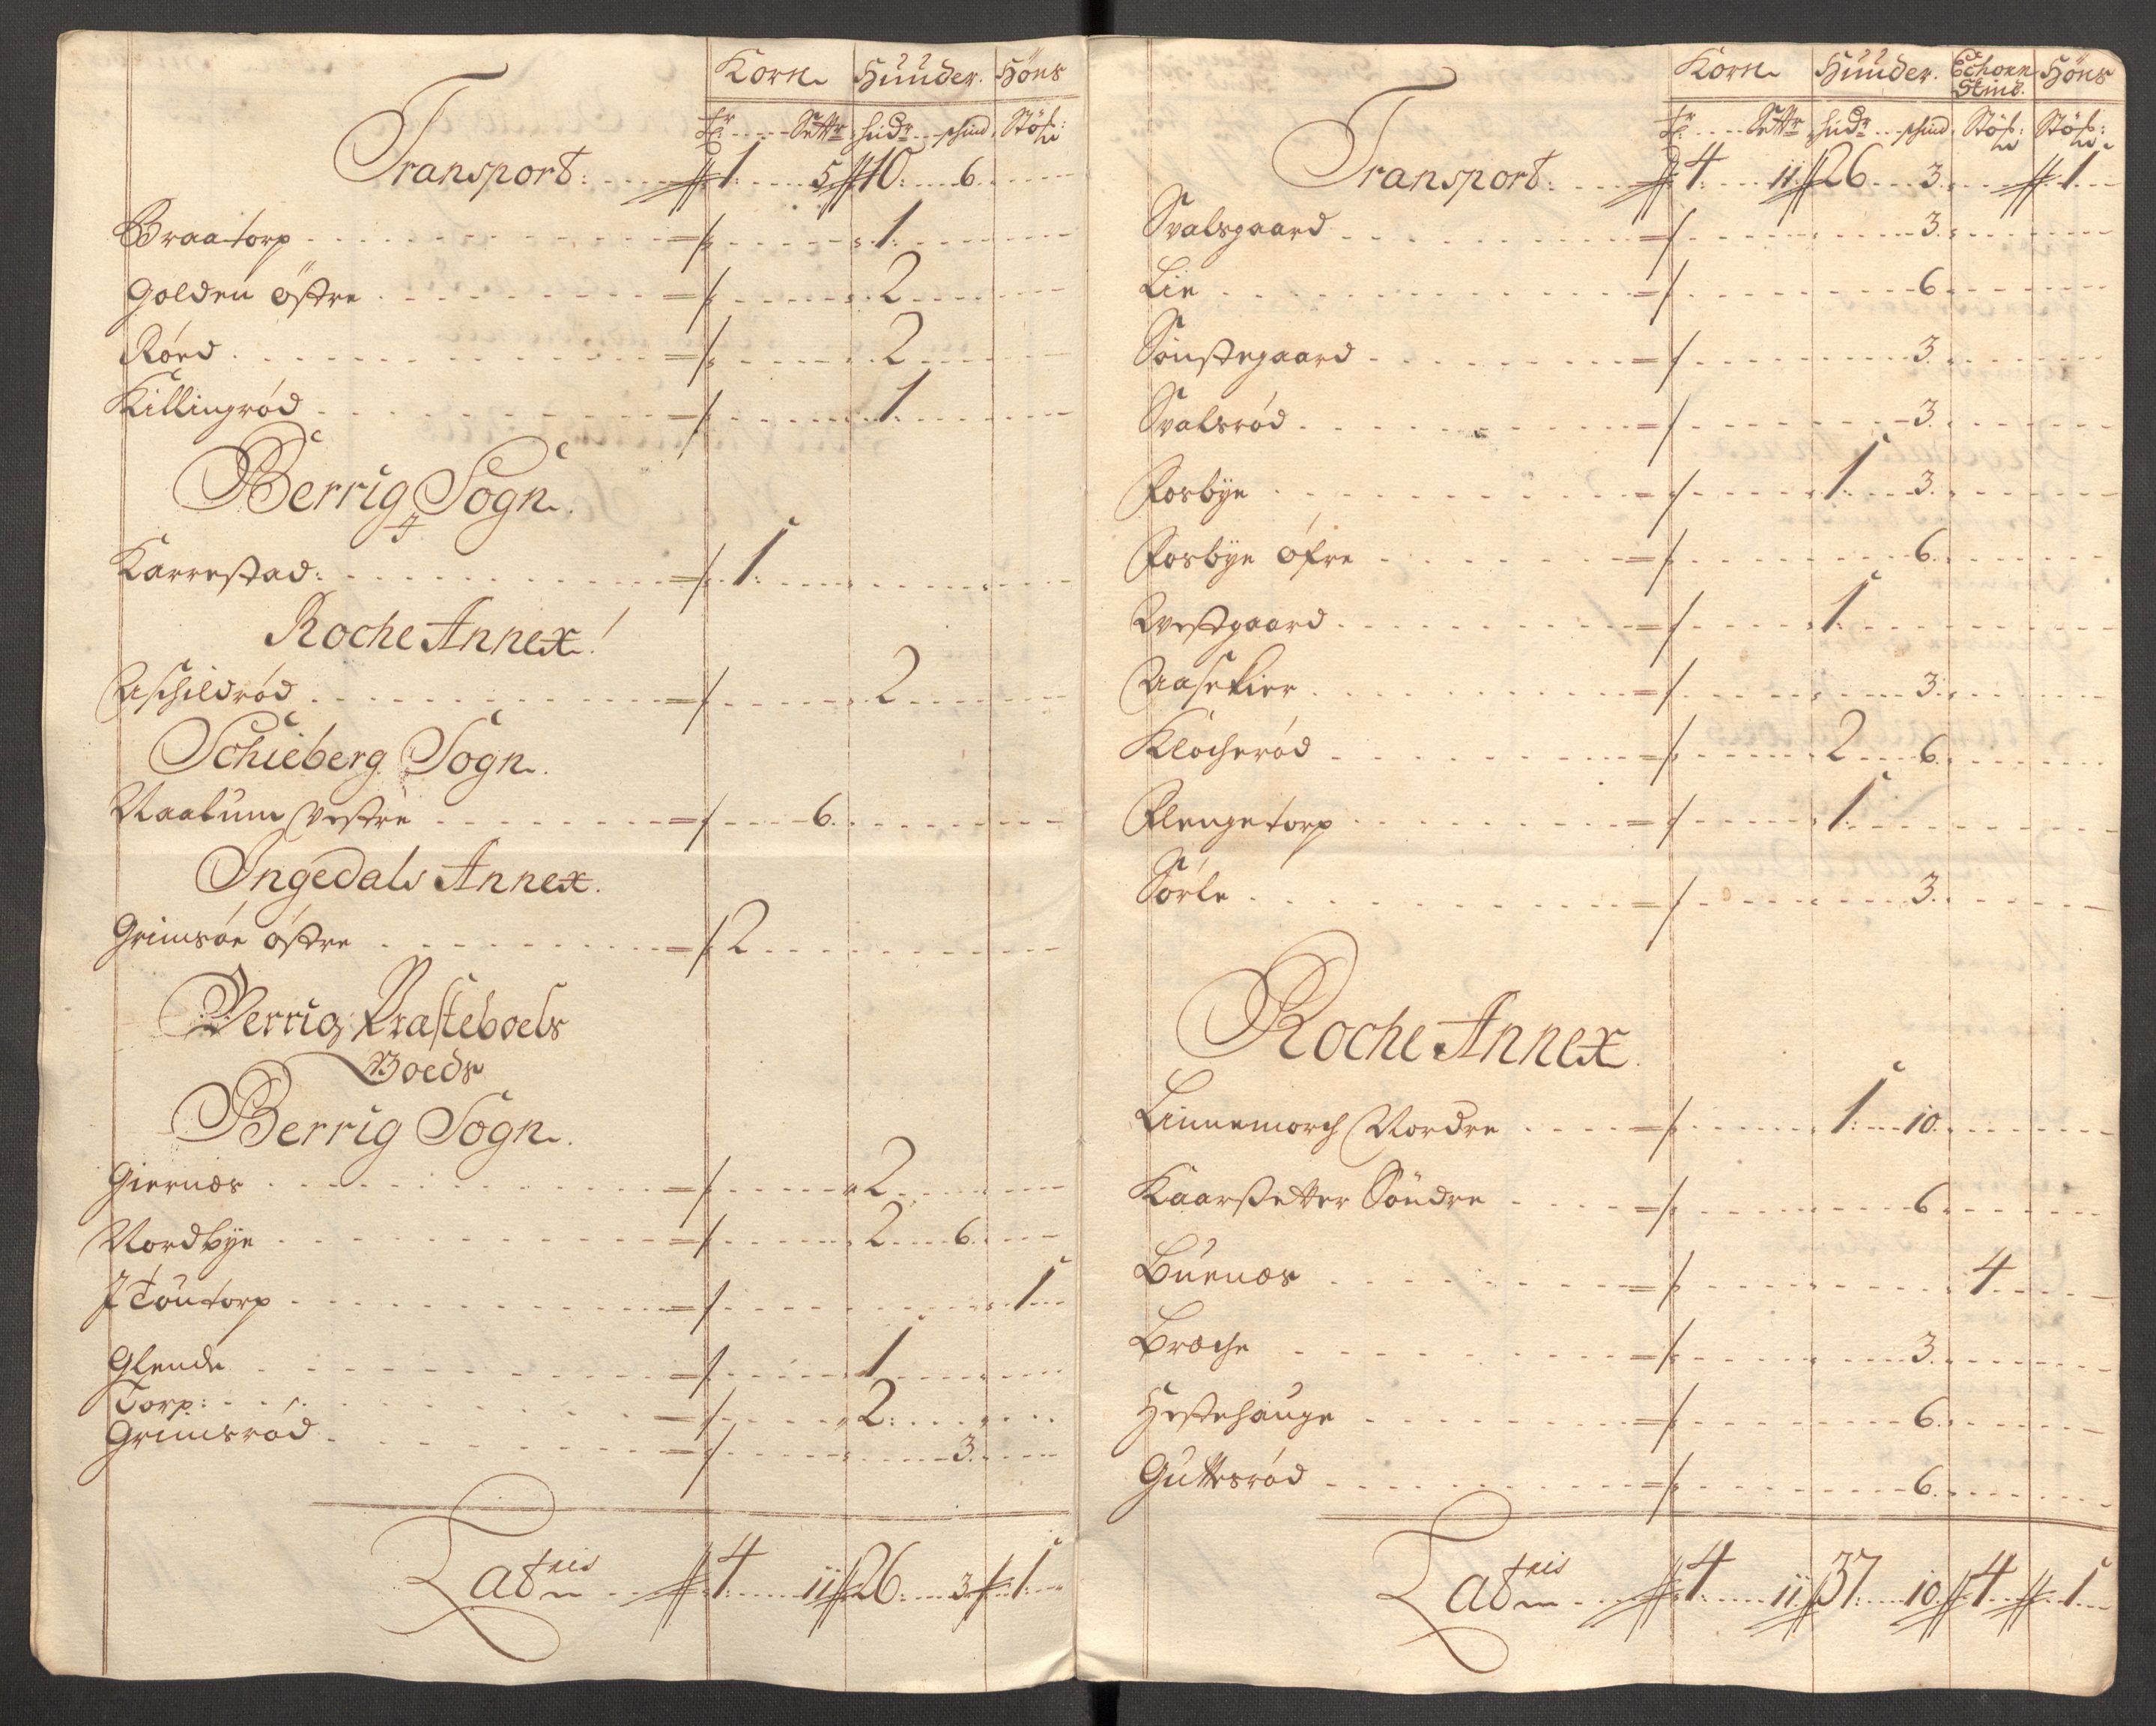 Korn Huuder. Höns
Tr Settr hudr skind Stöch:
Transport: 1 5 10: 6
Braatorp 1
Golden östre 2
Röed 2
Killingröd 1
Berrig Sogn.
Karrestad: 1
Roche Annex
Aschildröd 2
Schieberg Sogn.
Naalum Vestre 6
Ingedals Annex.
Grimsöe östre 2
Berrig Præsteboels
Boeds
Berrig Sogn.
Giernæs 2
Nordbÿe 2 6
Toutorp 1
Glende 1
Torp: 2
Grimsröd 3
Lateris 4 11 26 3 1
Korn Huuder. Echorn Skind. Höns
Tr Settr hudr skind Stöch: Stöch:
Transport: 4 11 26 3 1
Svalsgaard 3
Lie 6
Sönstegaard 3
Svalsröd 3
Fosbÿe 1 3
Fosbÿe öfre 6
Westgaard 1
Aasekier 3
Klocheröd 2 6
Flengetorp 1
Sörle 3
Roche Annex
Linnemorch Nordre 1 10
Kaarsetter Söndre 6
Buenæs 4
Broche 3
Hestehauge 6
Guttersröd 6
Lateris 4 11 37 10 4 1